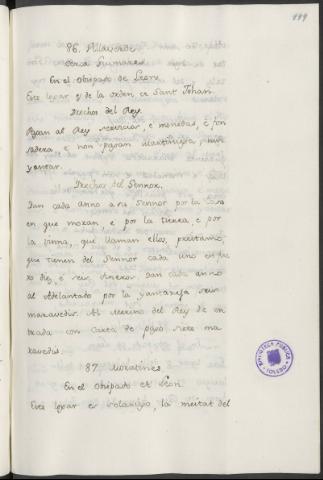 199
86. Villaverde
Cerca Fumanes
En el obispado de Leon.
Este logar es de la orden de Sant Johan.
Drechos del Rey.
Pagan al Rey servicios, e monedas, e fon
sadera, e non pagan martiniega, nin
yantar.
Drechos del Sennor.
Dan cada anno a su Sennor por la casa
en que moran e por la tierra, e por
la que llaman ellos, prestamo,
que tienen del Sennor cada uno
diez e seis dineros. Dan cada anno
al Adelantado por la yantareja seis
maravedis. Al Merino del Rey de en
trada con carta de pago siete ma
ravedis.
87. Moratinos.
En el obispado de Leon.
Este logar es solariego, la meitat del
BIBLIOTECA PÚBLICA
TOLEDO